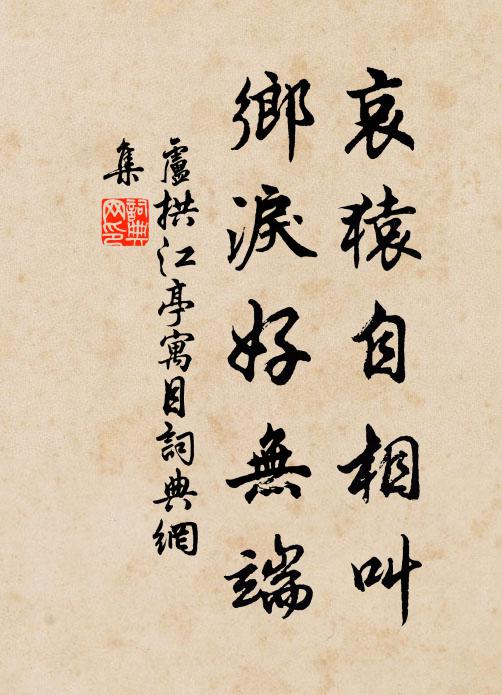 哀猿自相叫
鄉淚好無端
盧拱江亭寓目詞典網
集
詞典
网印